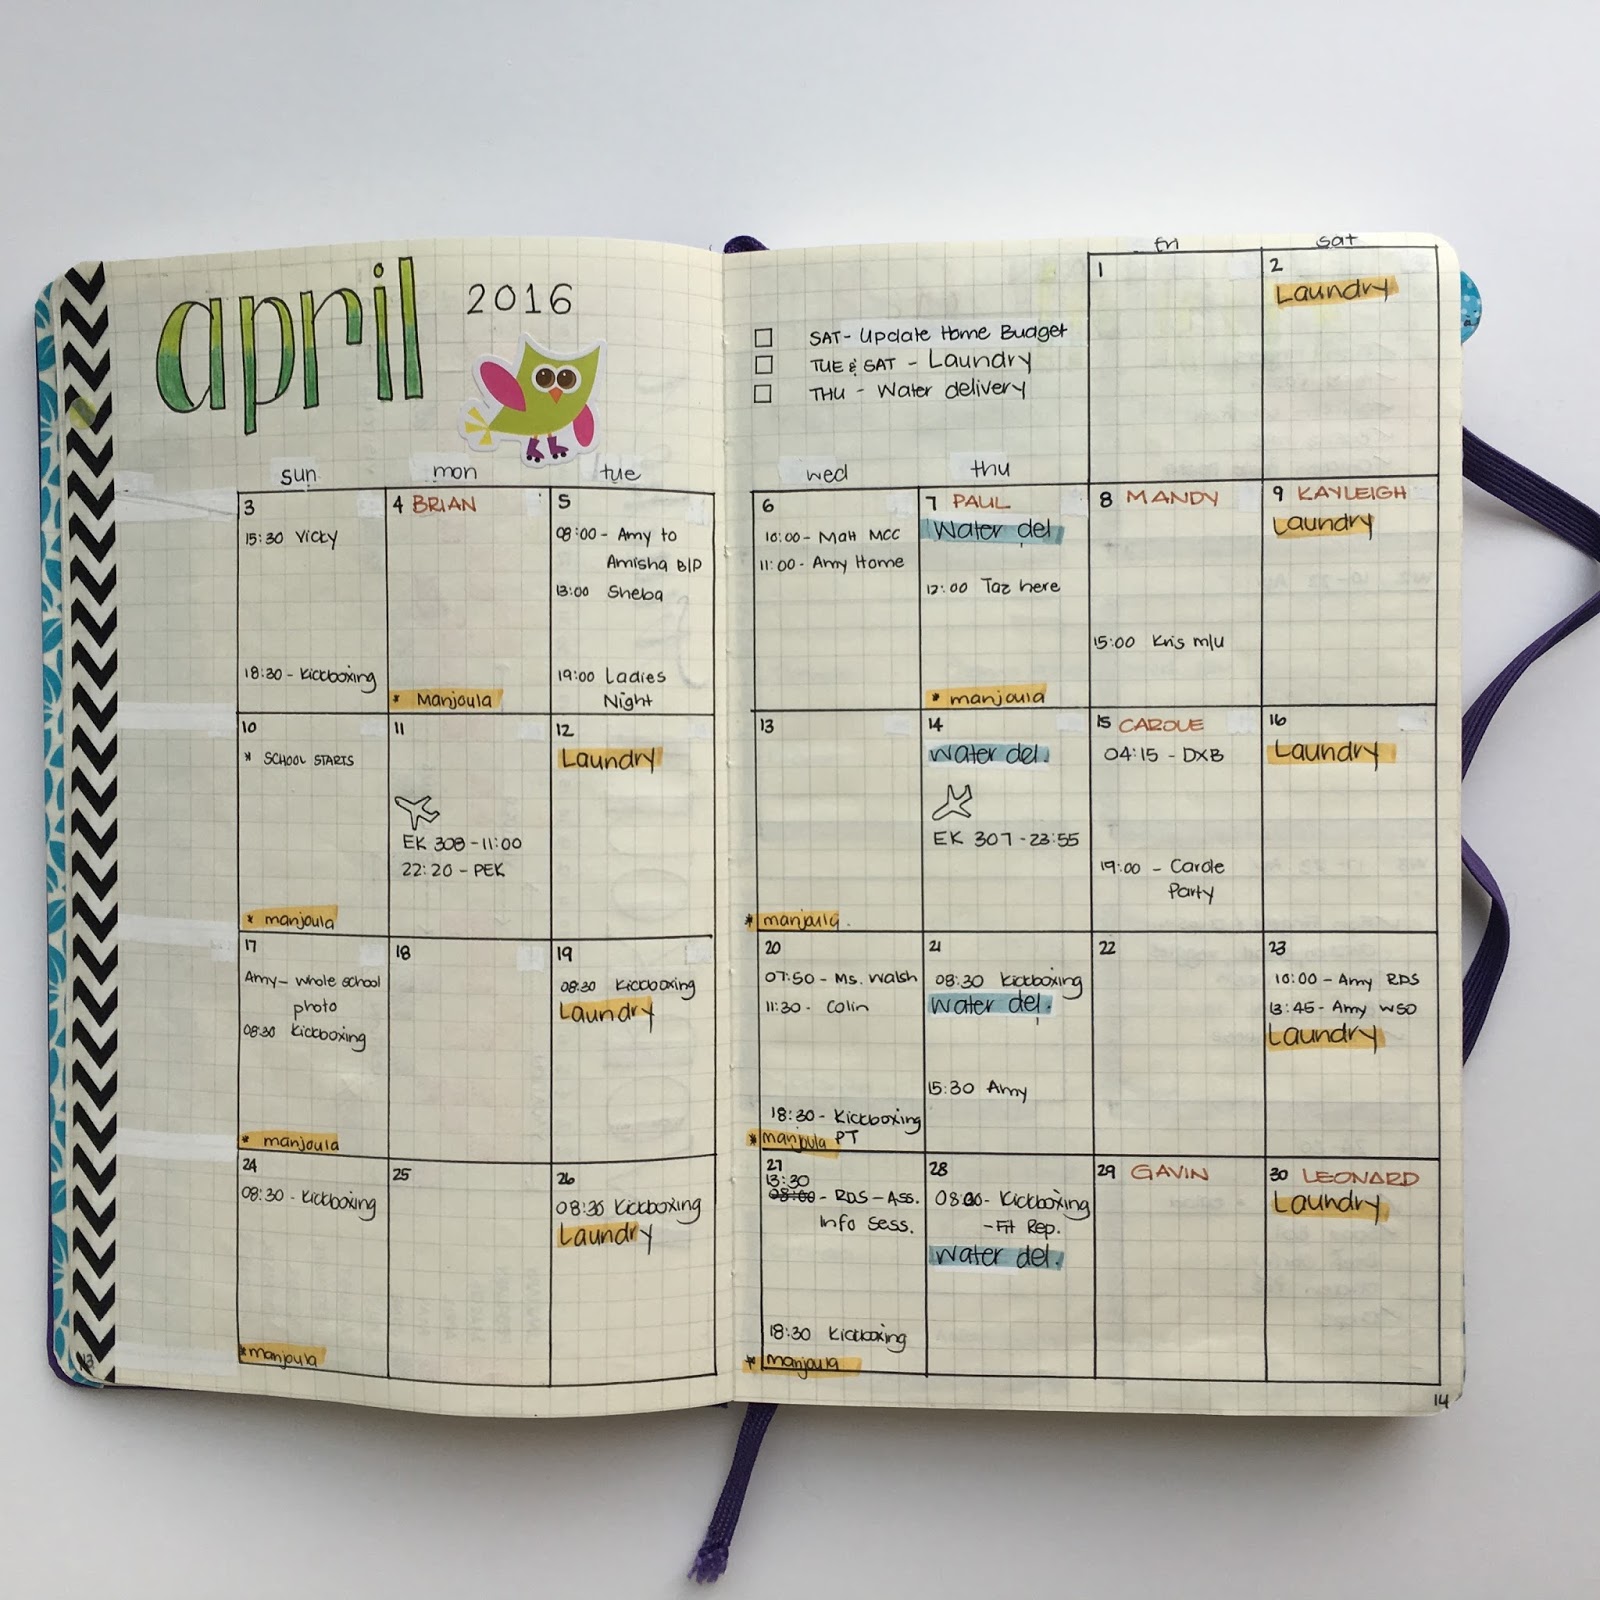 april 2016
SAT - Update Home Budget
TUE & SAT - Laundry
THU - Water delivery
sun
mon
tue
wed
thu
fri
sat
1
2
Laundry
3
15:30 Vicky
18:30 - Kickboxing
4 BRIAN
* Manjoula
5
08:00 - Amy to
Amisha B/P
13:00 Sheba
19:00 Ladies
Night
6
10:00 - Matt MCC
11:00 - Amy Home
7 PAUL
Water del
12:00 Taz here
* manjoula
8 MANDY
15:00 Kris m/u
9 KAYLEIGH
Laundry
10
* SCHOOL STARTS
* manjoula
11
EK 308 - 11:00
22:20 - PEK
12
Laundry
13
* manjoula.
14
Water del.
EK 307 - 23:55
15 CAROLE
04:15 - DXB
19:00 - Carole
Party
16
Laundry
17
Amy - whole school
photo
08:30 Kickboxing
* manjoula
18
19
08:30 Kickboxing
Laundry
20
07:50 - Ms. Walsh
11:30 - Colin
18:30 - Kickboxing
PT
* manjoula
21
08:30 Kickboxing
Water del.
15:30 Amy
22
23
10:00 - Amy RDS
13:45 - Amy WSO
Laundry
24
08:30 - Kickboxing
* manjoula
25
26
08:30 Kickboxing
Laundry
27
13:30
08:00 - RDS - Ass.
Info Sess.
18:30 Kickboxing
* manjoula
28
08:30 - Kickboxing
- Fit Rep.
Water del.
29 GAVIN
30 LEONARD
Laundry
13
14